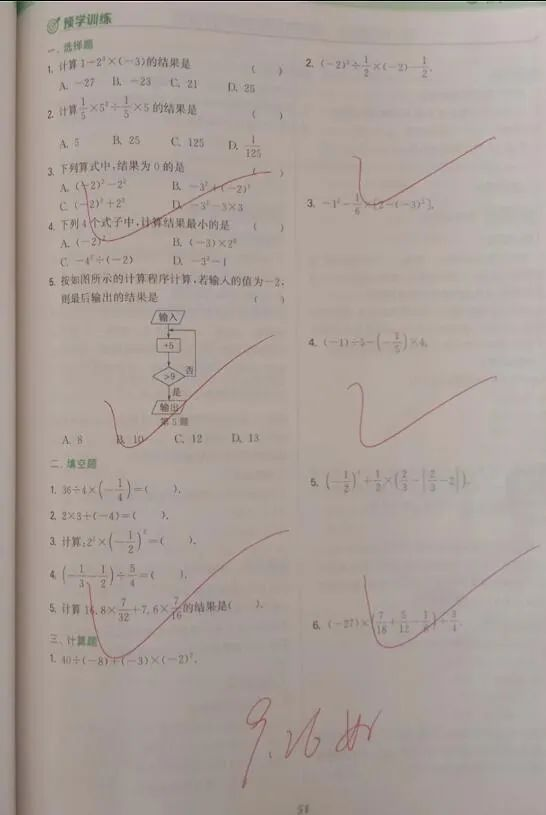 预学训练
一、选择题
1. 计算1-2³×(-3)的结果是 ( )
A. -27 B. -23 C. 21 D. 25
2. 计算1/5×5²÷1/5×5的结果是 ( )
A. 5 B. 25 C. 125 D. 1/125
3. 下列算式中,结果为0的是 ( )
A. (-2)²-2² B. -3²+(-2)³
C. (-2)²+2² D. -3²-3×3
4. 下列4个式子中,计算结果最小的是 ( )
A. (-2)² B. (-3)×2²
C. -4²÷(-2) D. -3²-1
5. 按如图所示的计算程序计算,若输入的值为-2,
则最后输出的结果是 ( )
输入
+5
>9 否
是
输出
第5题
A. 8 B. 10 C. 12 D. 13
二、填空题
1. 36÷4×(-1/4)=( ).
2. 2×3+(-4)=( ).
3. 计算:2²×(-1/2)²=( ).
4. (-1/3-1/2)÷5/4=( ).
5. 计算16.8×7/32+7.6×7/16的结果是( ).
三、计算题
1. 40÷(-8)+(-3)×(-2)².
2. (-2)²÷1/2×(-2)-1/2.
3. -1²-1/6×[2-(-3)²].
4. (-1)÷5-(-1/5)×4.
5. (-1/2)²+1/2×(2/3-|2/3-2|).
6. (-27)×(7/18+5/12-1/6)+3/4.
9.26
51